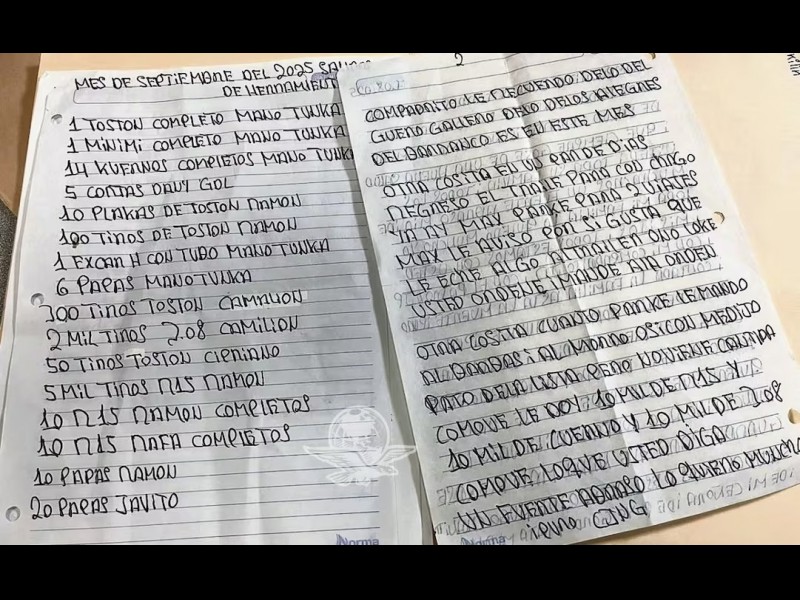 MES DE SEPTIEMBRE DEL 2025
DE HERRAMIENT
1 TOSTON COMPLETO MANO TUNKA
1 MINIMI COMPLETO MANO TUNKA
14 KUERNOS COMPLETOS MANO TUNKA
5 CORTAS DAVY GOL
10 PLAKAS DE TOSTON RAMON
100 TIROS DE TOSTON RAMON
1 EXCAR H CON TUBO MANO TUNKA
6 PAPAS MANO TUNKA
300 TIROS TOSTON CAMALION
2 MIL TIROS 2.08 CAMILION
50 TIROS TOSTON CIPRIANO
5 MIL TIROS R15 RAMON
10 R15 RAMON COMPLETOS
10 R15 RAFA COMPLETOS
10 PAPAS RAMON
20 PAPAS JAVITO
Norma
2
COMPADRITO LE RECUERDO DELO DEL
GUERO GALLERO DELO DELOS ALEGRES
DEL BARRANCO ES EU ESTE MES
OTRA COSITA EN UN PAR DE DIAS
REGRESO EL TRAILE PARA CON CHAGO
YA AY MAX PARKE PARA 2 VIAJES
MAX LE AVISO POR SI GUSTA QUE
LE ECHE ALGO AL TRAILE N ONO LOKE
USTED ORDENE
OTRA COSITA CUANTO PARKE LE MANDO
AL BARBAS I AL MORRO OSICON ME DIJO
PATO DELA LISTA PERO NO VIENE CANTIDA
COMO VE LE DOY 10 MIL DE R15 Y
10 MIL DE CUERNO Y 10 MIL DE 2.08
COMO VE LO QUE USTED DIGA
UN FUERTE ABRASO LO QUERO MUNCHO
CJNG
Norma